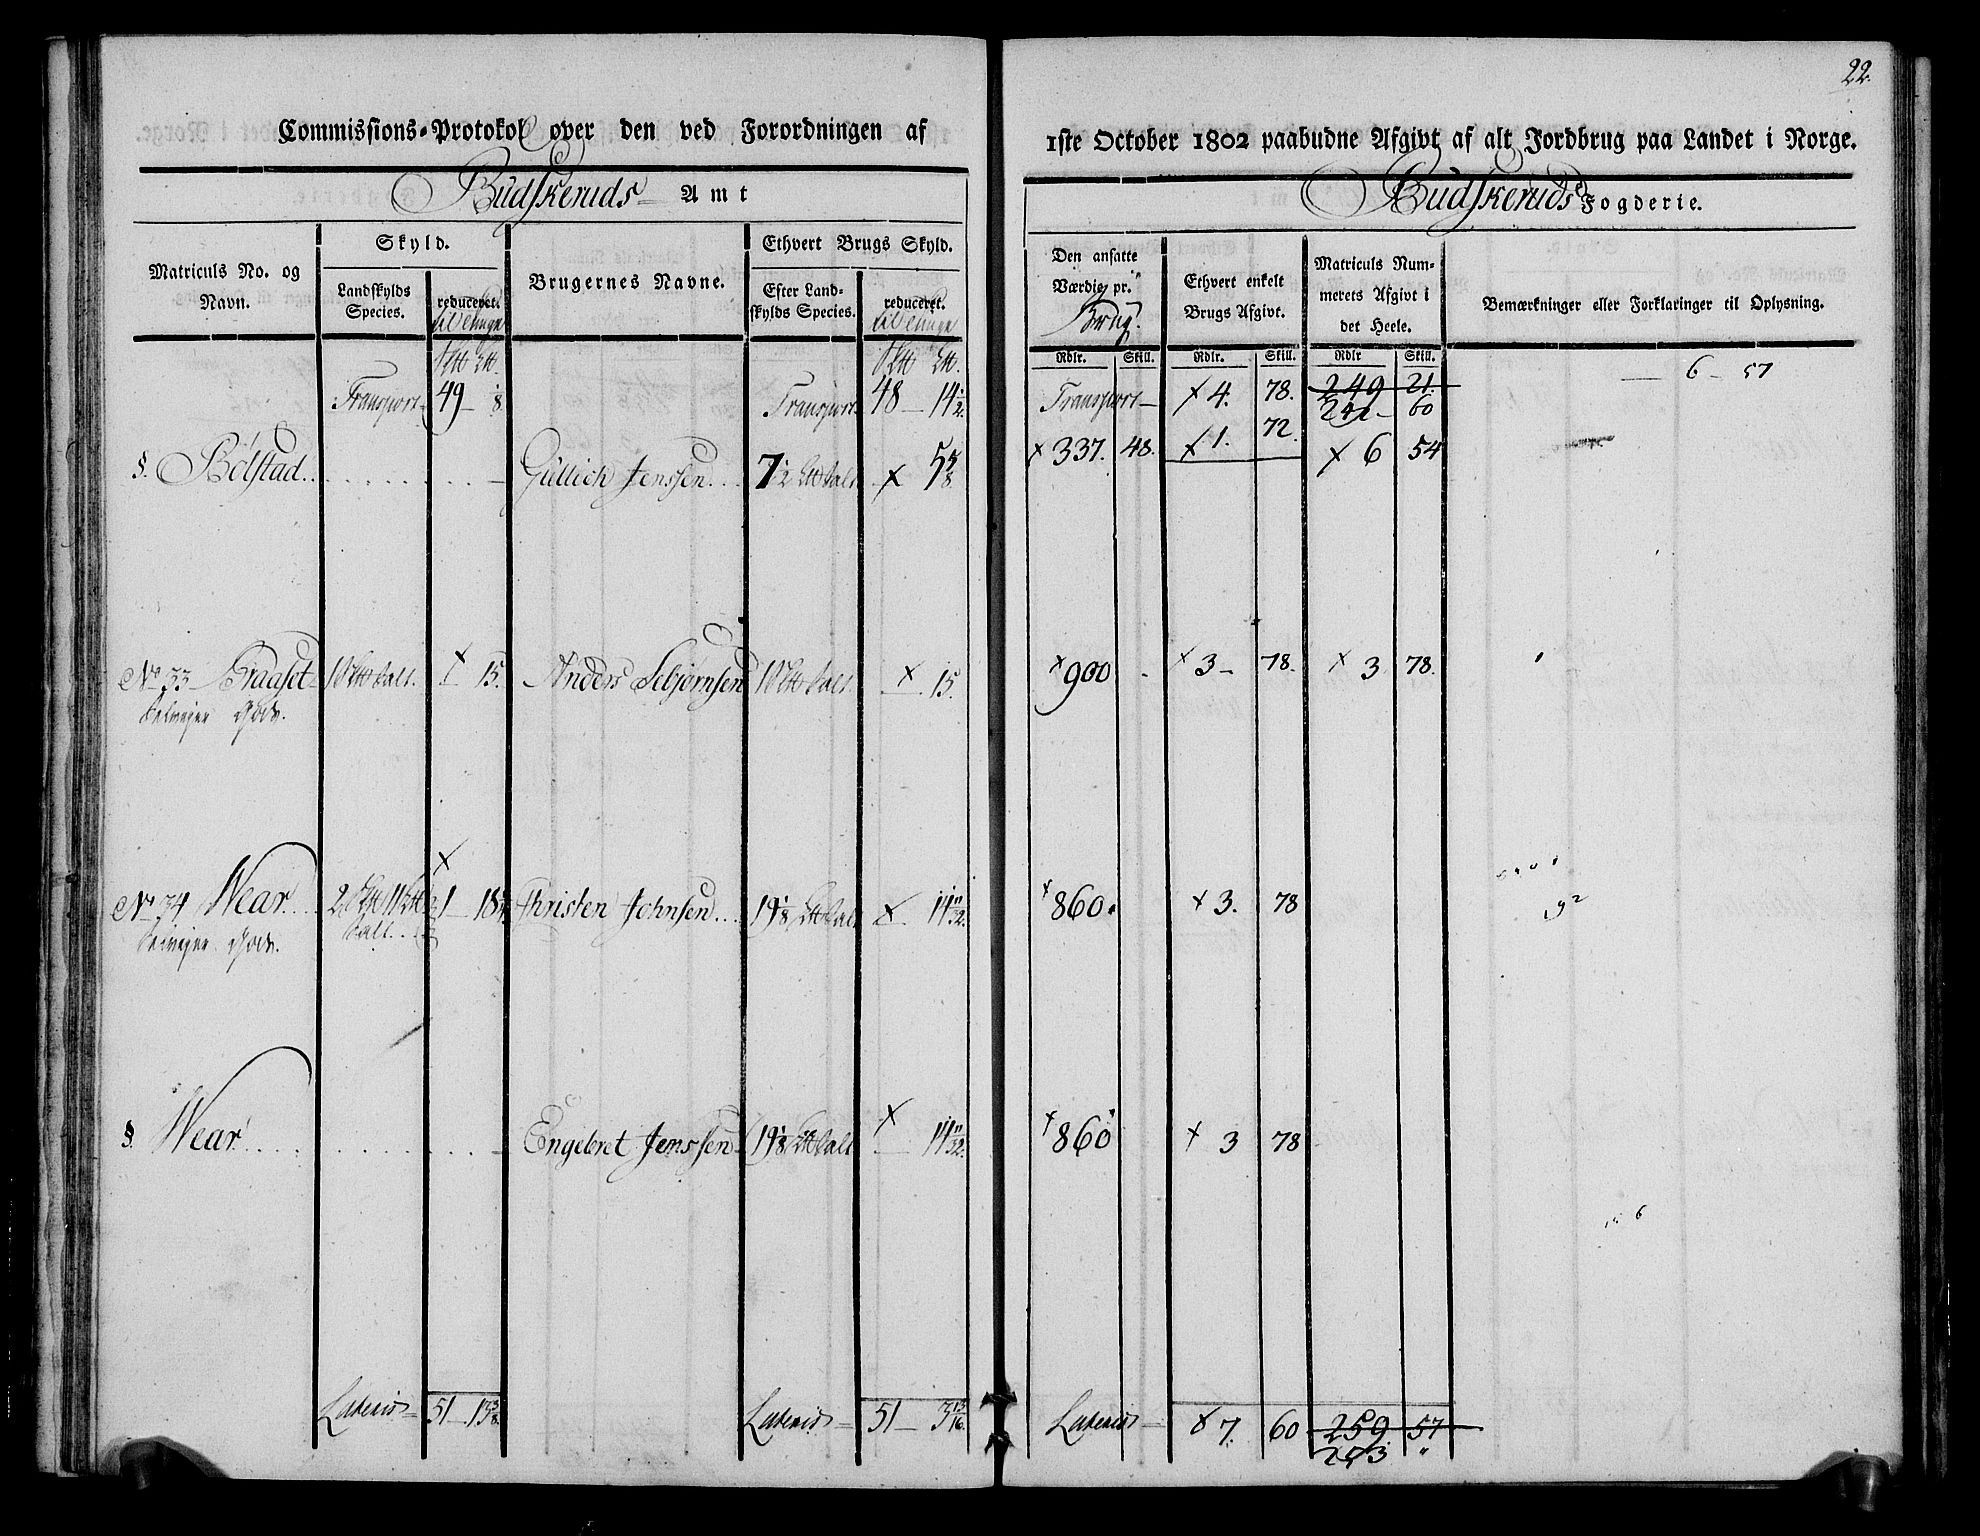 22.
Commissions-Protokol over den ved Forordningen af
1ste October 1802 paabudne Afgivt af alt Jordbrug paa Landet i Norge.
Budskeruds Amt
Budskeruds Fogderie.
Matriculs No. og Navn.
Skyld.
Landskylds Species.
reduceret.
Brugernes Navne.
Ethvert Brugs Skyld.
Efter Landskylds Species.
reduceret.
Den ansatte Værdie pr. Brug.
Ethvert enkelt Brugs Afgivt.
Matriculs Nummerets Afgivt i det Heele.
Bemærkninger eller Forklaringer til Oplysning.
Rdlr. Skill. Rdlr. Skill. Rdlr Skill.
Transport 49 – 8. Transport 48 – 14 1/2 Transport – × 4. 78. 249 21. 6 – 57
242 – 60
§. Bølstad Gullich Jenssen 7 1/2 × 5 5/8 × 337. 48. × 1. 72. × 6 54
No 33 Braaset × 15. Anders × 15. × 900 × 3 – 78. × 3 78.
Selvejer Gods.
No 34 Wear × 1 – 18 Christen Johnsen 19 1/8 × 14 11/32. × 860. × 3. 78
Selvejer Gods.
§. Wear Engebret Jenssen 19 1/8 × 14 11/32. × 860 × 3 78
Lateris 51 – 13 3/8. Lateris – 51 – 3 13/16. Lateris × 7. 60 259 57
243 "